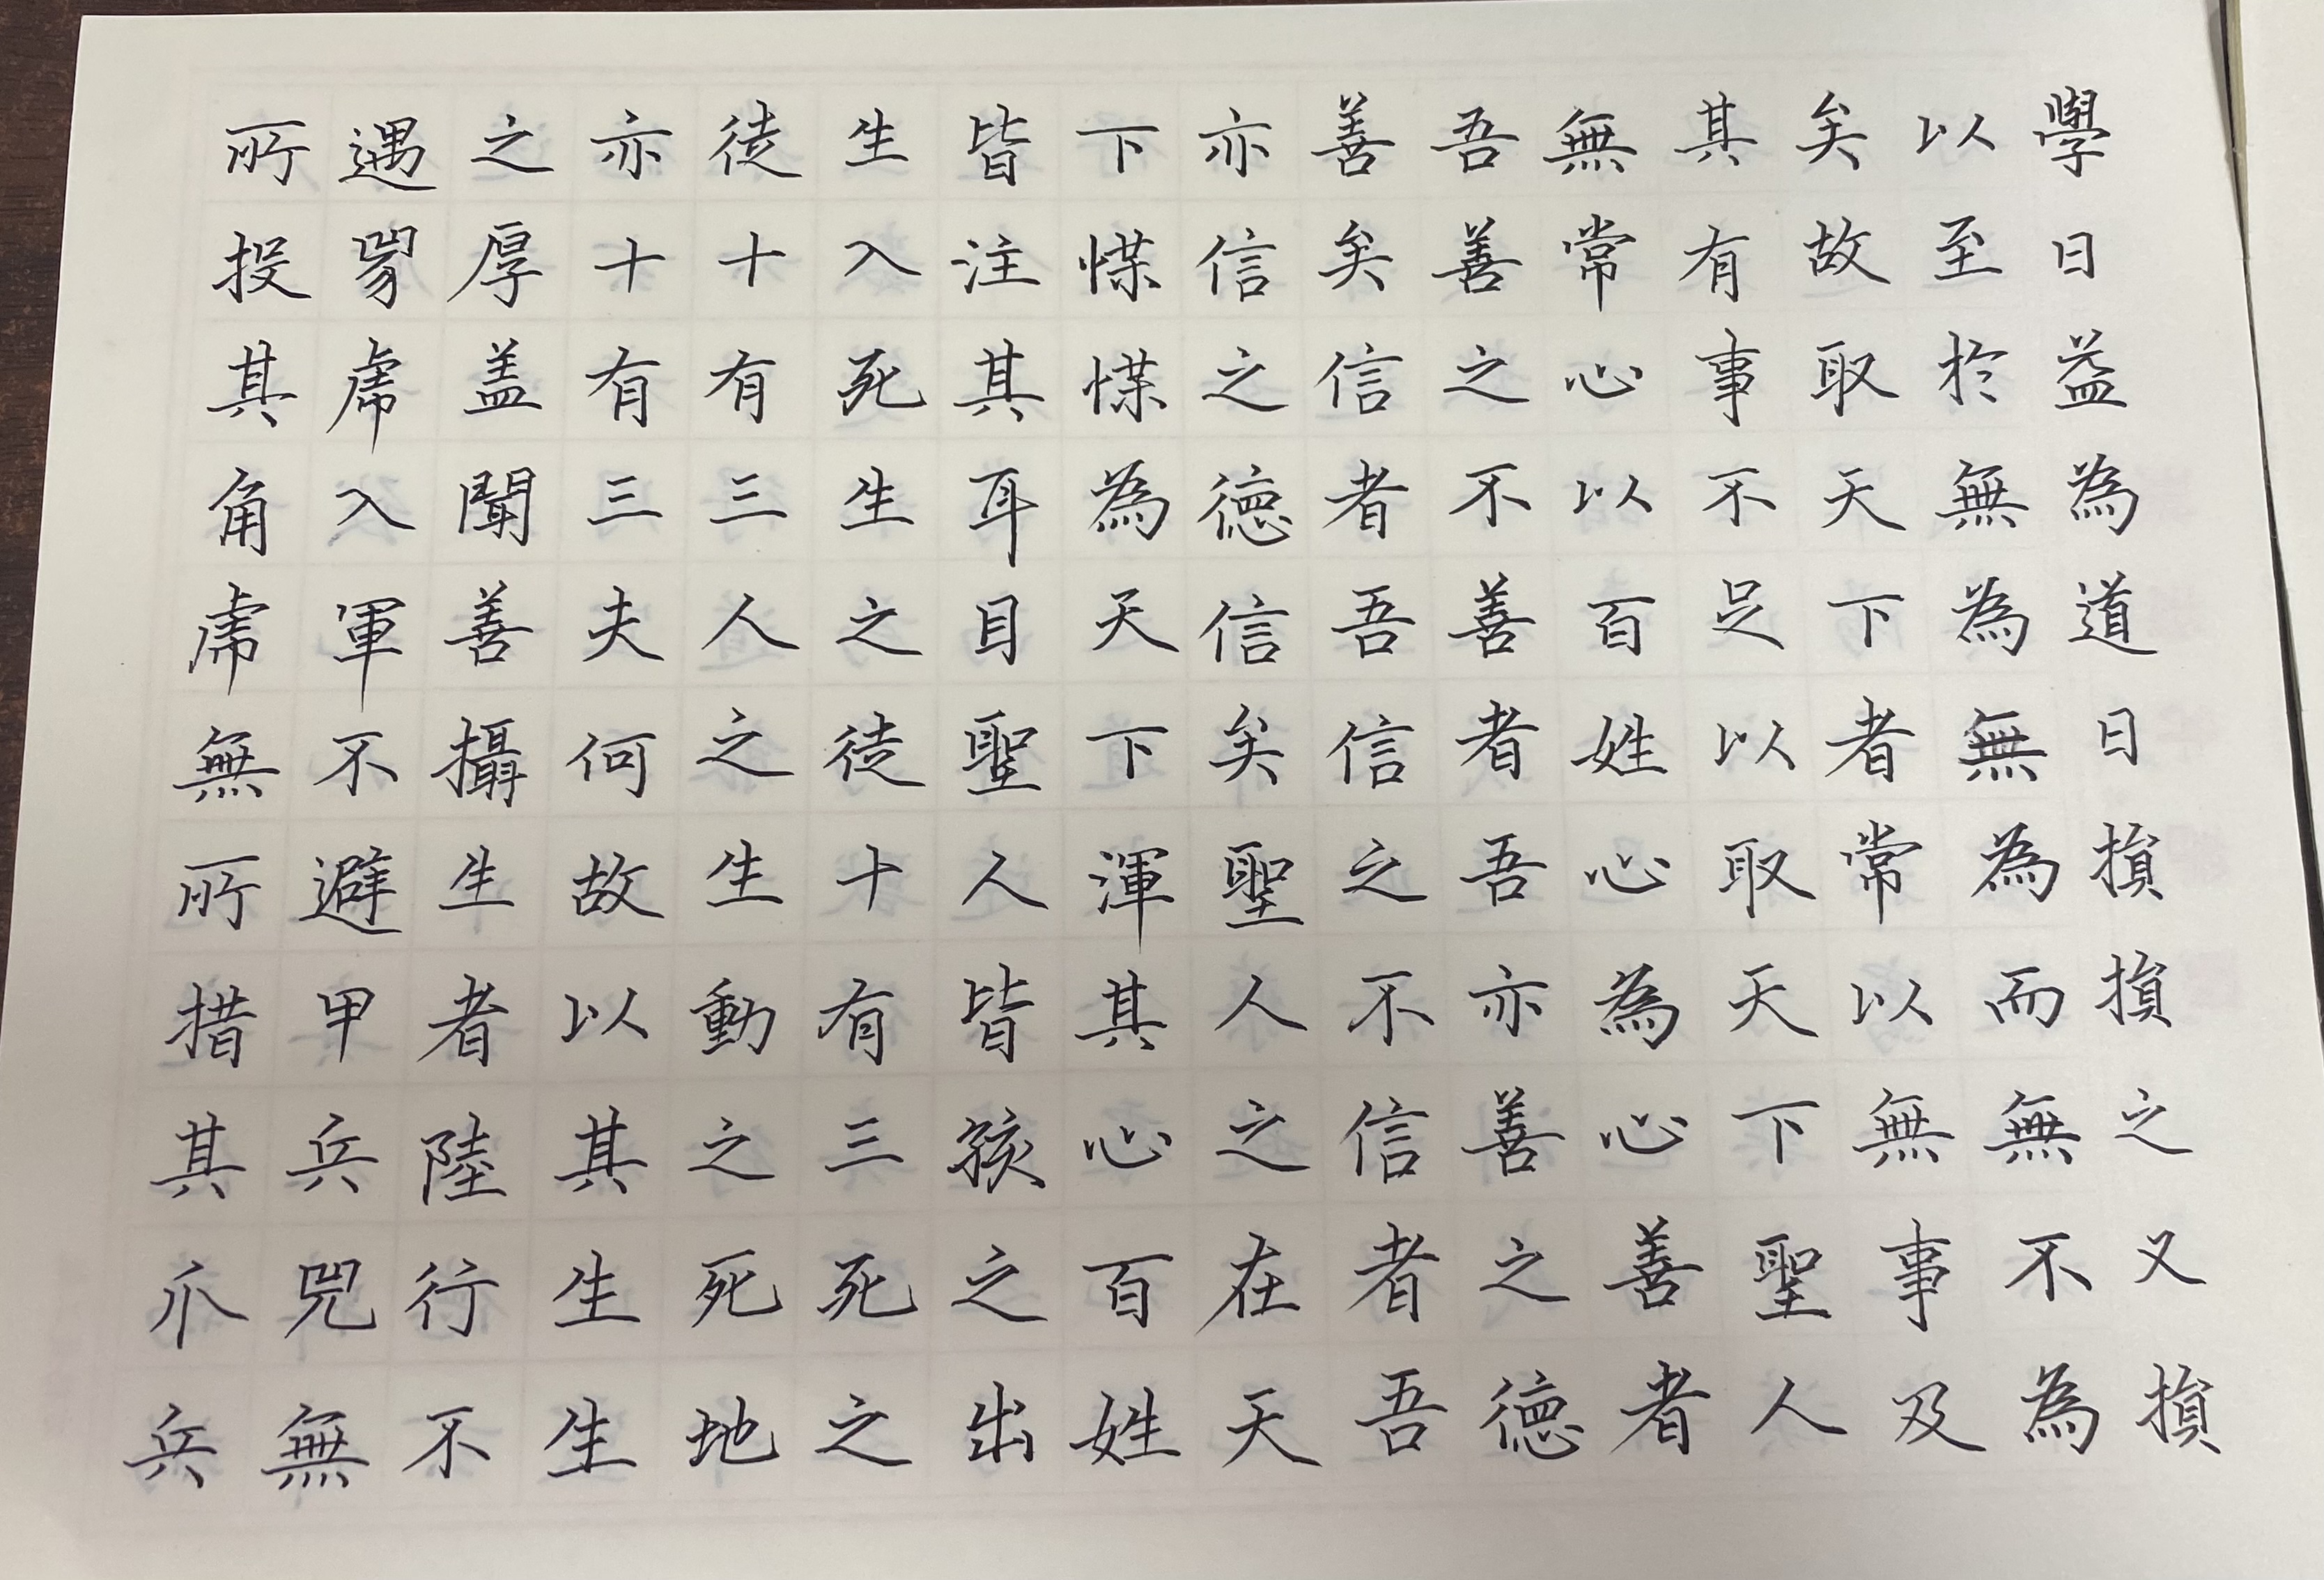 學日益為道日損損之又損
以至於無為無為而無不為
矣故取天下者常以無事及
其有事不足以取天下聖人
無常心以百姓心為心善者
吾善之不善者吾亦善之德
善矣信者吾信之不信者吾
亦信之德信矣聖人之在天
下惵惵為天下渾其心百姓
皆注其耳目聖人皆孩之出
生入死生之徒十有三死之
徒十有三人之生動之死地
亦十有三夫何故以其生生
之厚蓋聞善攝生者陸行不
遇兕虎入軍不避甲兵兕無
所投其角虎無所措其爪兵